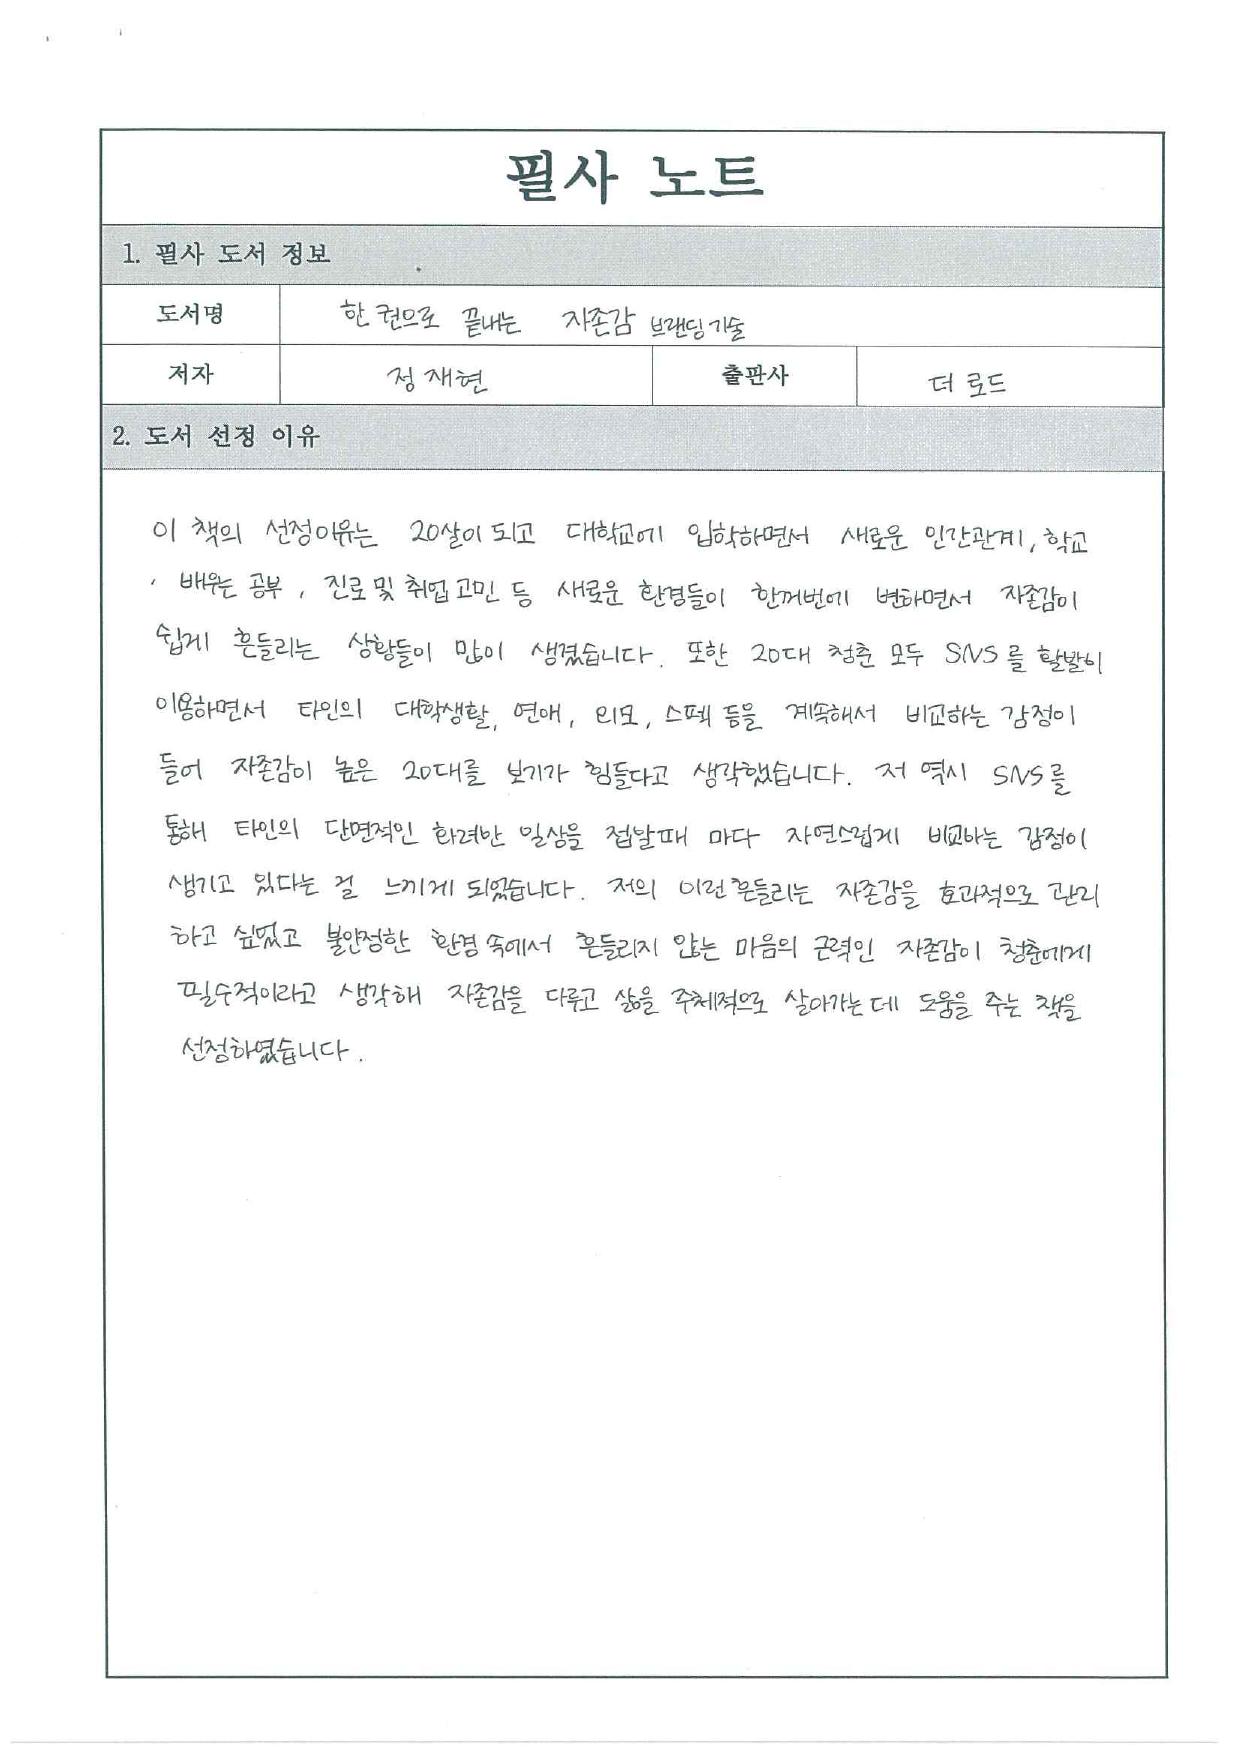 필사 노트
1. 필사 도서 정보
도서명 한 권으로 끝내는 자존감 브랜딩기술
저자 정재현 출판사 더 로드
2. 도서 선정 이유
이 책의 선정이유는 20살이 되고 대학교에 입학하면서 새로운 인간관계, 학교
배우는 공부, 진로 및 취업 고민 등 새로운 환경들이 한꺼번에 변하면서 자존감이
쉽게 흔들리는 상황들이 많이 생겼습니다. 또한 20대 청춘 모두 SNS를 활발히
이용하면서 타인의 대학생활, 연애, 외모, 스펙 등을 계속해서 비교하는 감정이
들어 자존감이 높은 20대를 보기가 힘들다고 생각했습니다. 저 역시 SNS를
통해 타인의 단면적인 화려한 일상을 접할때 마다 자연스럽게 비교하는 감정이
생기고 있다는 걸 느끼게 되었습니다. 저의 이런 흔들리는 자존감을 효과적으로 관리
하고 싶었고 불안정한 환경 속에서 흔들리지 않는 마음의 근력인 자존감이 청춘에게
필수적이라고 생각해 자존감을 다루고 삶을 주체적으로 살아가는데 도움을 주는 책을
선정하였습니다.